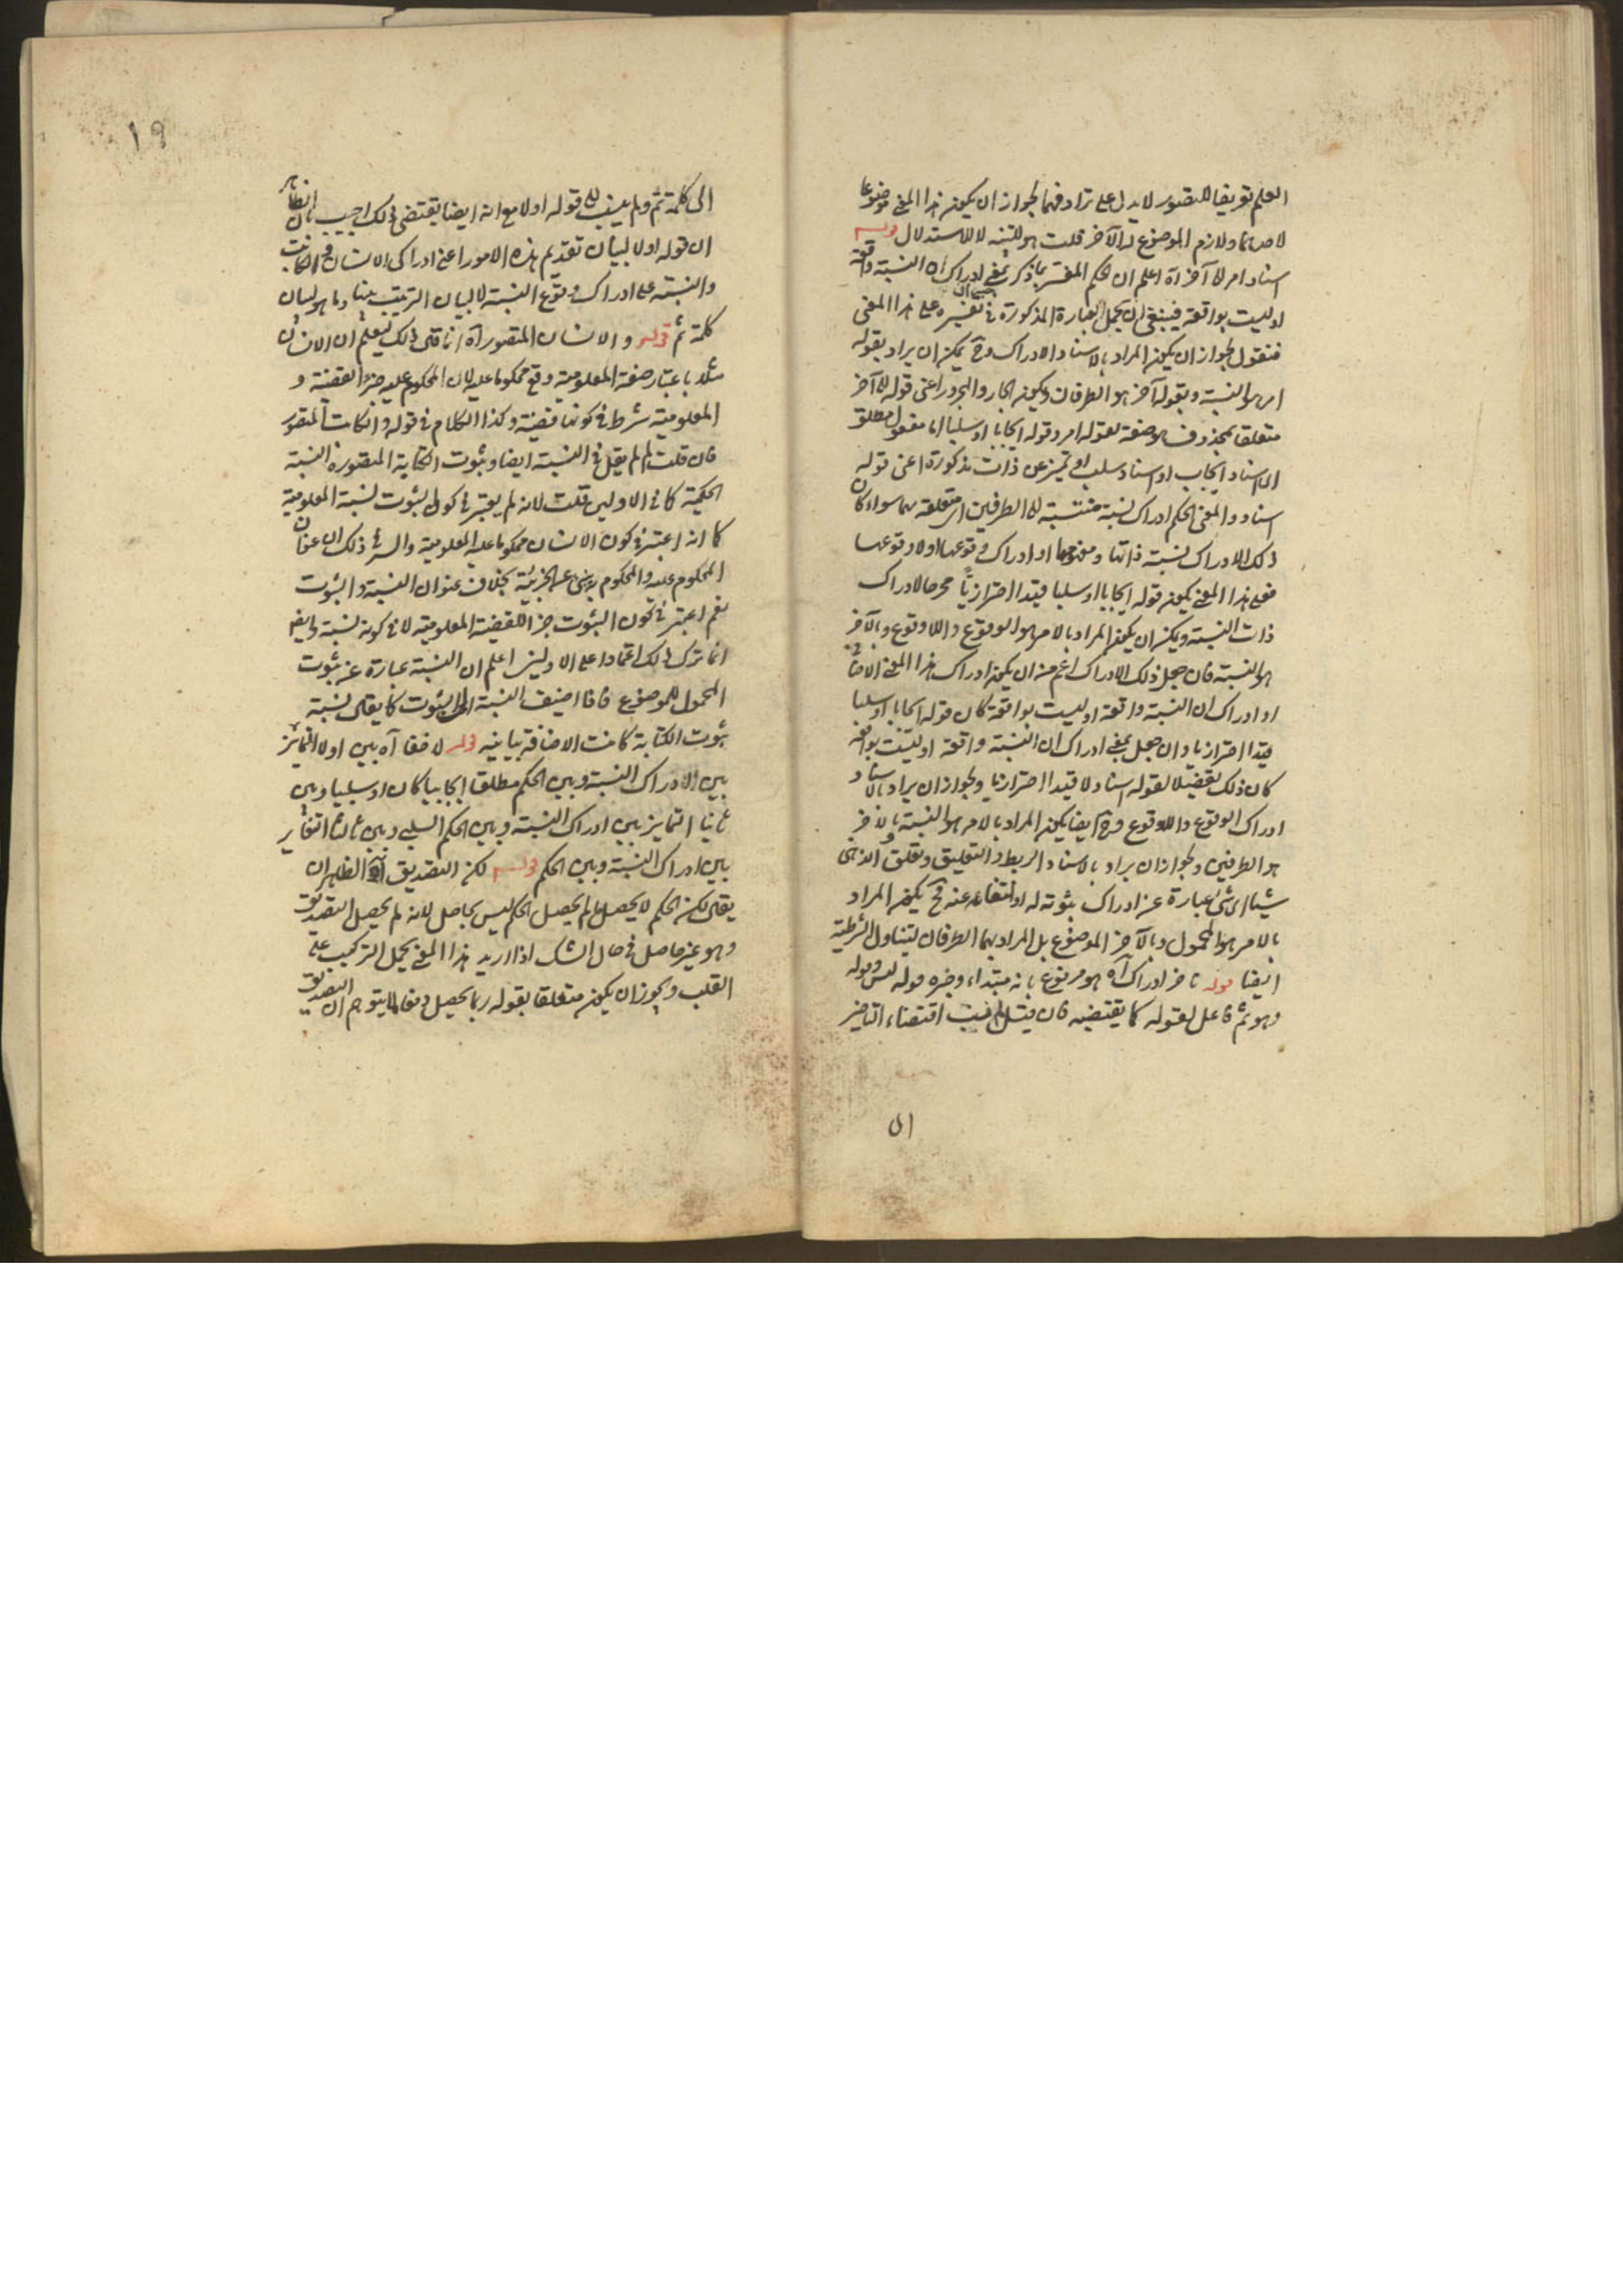 العلم تعريفا للتصور لا يدل على ترادفهما لجواز ان يكون هذا المعنى موضوعا
لاحدهما ولازم الموضوع له الآخر قلت هو للتنبيه لا للاستدلال قوله
اسناد امر الى آخر آه اعلم ان الحكم المفسر بما ذكر بمعنى ادراك ان النسبة واقعة
او ليست بواقعة فينبغي ان يحمل العبارة المذكورة في تفسيره على هذا المعنى
فنقول لجواز ان يكون المراد بالاسناد الادراك وح يمكن ان يراد بقوله
امر هو النسبة وبقوله آخر هو الطرفان ويكون الجار والمجرور اعني قوله الى آخر
متعلقا بمحذوف صفة لقوله امر وقوله ايجابا او سلبا اما مفعول مطلق
اي اسناد ايجاب او اسناد سلب او تميز عن ذات مذكورة اعني قوله
اسناد والمعنى الحكم ادراك نسبة منتسبة الى الطرفين اي متعلقة بهما سواء كان
ذلك الادراك نسبة ذاتها ومفهومها او ادراك وقوعها او لا وقوعها
فعلى هذا المعنى يكون قوله ايجابا او سلبا قيدا احترازيا مخرجا لادراك
ذات النسبة ويمكن ان يكون المراد بالامر هو الوقوع واللاوقوع وبالآخر
هو النسبة فان جعل ذلك الادراك اعم من ان يكون ادراك هذا المعنى الاضافي
او ادراك ان النسبة واقعة او ليست بواقعة كان قوله ايجابا او سلبا
قيدا احترازيا وان جعل بمعنى ادراك ان النسبة واقعة او ليست بواقعة
كان ذلك تفصيلا لقوله اسناد لا قيدا احترازيا ولجواز ان يراد بالاسناد
ادراك الوقوع واللاوقوع وح ايضا يكون المراد بالامر هو النسبة وبالآخر
هو الطرفين ولجواز ان يراد بالاسناد الربط والتعليق وتعلق الذهن
شيئا الى شيء عبارة عن ادراك ثبوته له او انتفاءه عنه فح يكون المراد
بالامر هو المحمول وبالآخر الموضوع بل المراد بهما الطرفان ليتناول الشرطية
ايضا قوله تأخر ادراك آه هو مرفوع بانه مبتداء وخبره قوله ليس وقوله
وهو ثم فاعل لقوله كما يقتضيه فان قيل لم نسب اقتضاء التأخير
ال
١٩
الى كلمة ثم ولم ينسب الى قوله اولا مع انه ايضا يقتضي ذلك اجيب بان الظاهر
ان قوله اولا لبيان تقديم هذه الامور اعني ادراك الانسان والكاتب
والنسبة على ادراك وقوع النسبة لا لبيان الترتيب بينها وما هو لبيان
كلمة ثم قوله والانسان المتصور آه انما قال ذلك ليعلم ان الانسان
مثلا باعتبار صفة المعلومية وقع محكوما عليه لان المحكوم عليه جزء القضية و
المعلومية شرط في كونها قضية وكذا الكلام في قوله والكاتب المتصور
فان قلت لم لم يقل في النسبة ايضا وثبوت الكتابة المتصورة النسبة
الحكمية كما في الاولين قلت لانه لم يعتبر في كون الثبوت نسبة المعلومية
كما انه اعتبر في كون الانسان محكوما عليه المعلومية والسر في ذلك ان عنوان
المحكوم عليه والمحكوم به ينبئ عن الجزئية بخلاف عنوان النسبة والثبوت
نعم اعتبر في كون الثبوت جزءا للقضية المعلومية لا في كونه نسبة وايضا
انما ترك ذلك اعتمادا على الاولين اعلم ان النسبة عبارة عن ثبوت
المحمول للموضوع فاذا اضيف النسبة الى الثبوت كما يقال نسبة
ثبوت الكتابة كانت الاضافة بيانية قوله لا خفا آه بين اولا التمايز
بين الادراك النسبة وبين الحكم مطلقا ايجابيا كان او سلبيا وبين
ثانيا التمايز بين ادراك النسبة وبين الحكم السلبي وبين ثالثا التغاير
بين ادراك النسبة وبين الحكم قوله لكن التصديق آه الظاهر ان
يقال لكن الحكم لا يحصل لم يحصل الحكم ليس بحاصل لانه لم يحصل التصديق
وهو غير حاصل في حال الشك اذا اريد هذا المعنى يحمل التركيب على
القلب ويجوز ان يكون متعلقا بقوله ربما يحصل دفعا لما يتوهم ان التصديق